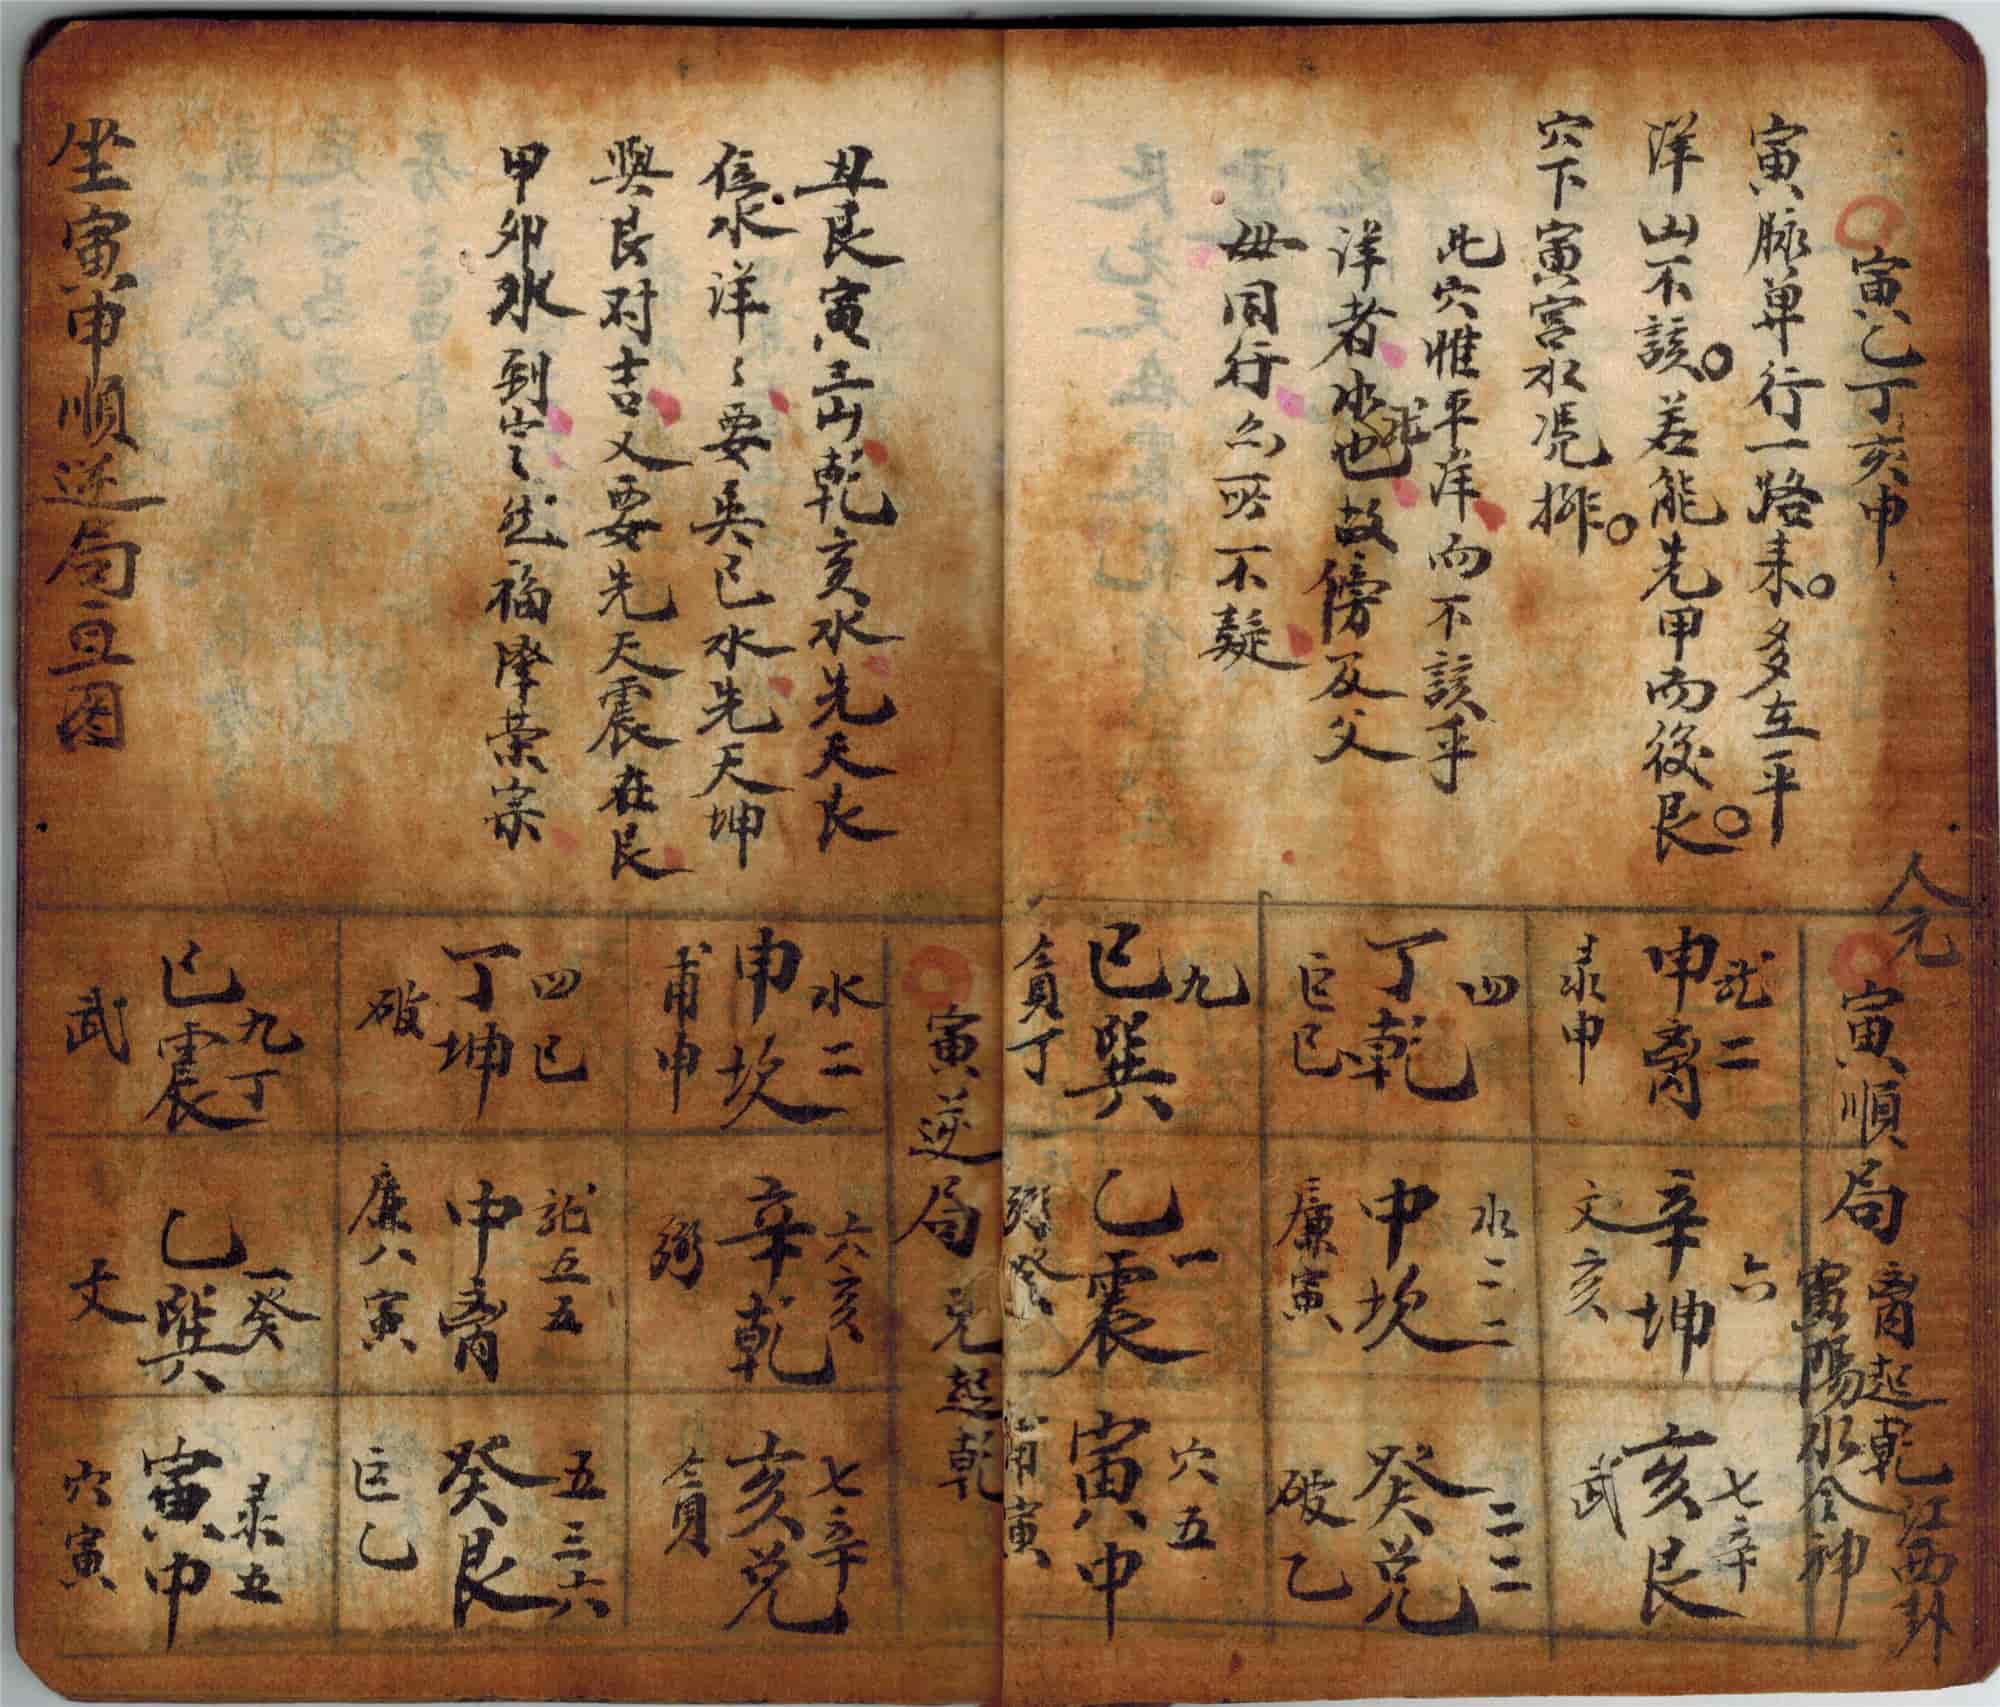 寅乙丁亥申
寅脉单行一路来。多在平
洋山不該。若能先甲而後艮。
穴下寅宮水凴排。
此穴惟平洋而不該乎
洋者水也龍故傍及父
毋同行公所不疑
人元
寅順局
离起乾江西卦
寅陽水令神
龙二
申离
录申
四
丁乾
巨巳
九
巳巽
貪丁
六
辛坤
文亥
水一二
中坎
廉寅
一
乙震
弼癸
七辛
亥艮
武
二二
癸兑
破乙
穴五
寅中
甫寅
丑艮寅三山乾亥水先天艮
位水洋々要巽巳水先天坤
與艮对吉又要先天震在艮
甲夘水到宀々然福隆荣宗
坐寅申順逆局五图
寅逆局
兑起乾
水二
申坎
甫申
四巳
丁坤
破
九丁
巳震
武
六亥
辛乾
弼
龍五五
中离
廉八寅
一癸
乙巽
文
七辛
亥兑
貪
五三六
癸艮
巨乙
录五
寅中
穴寅